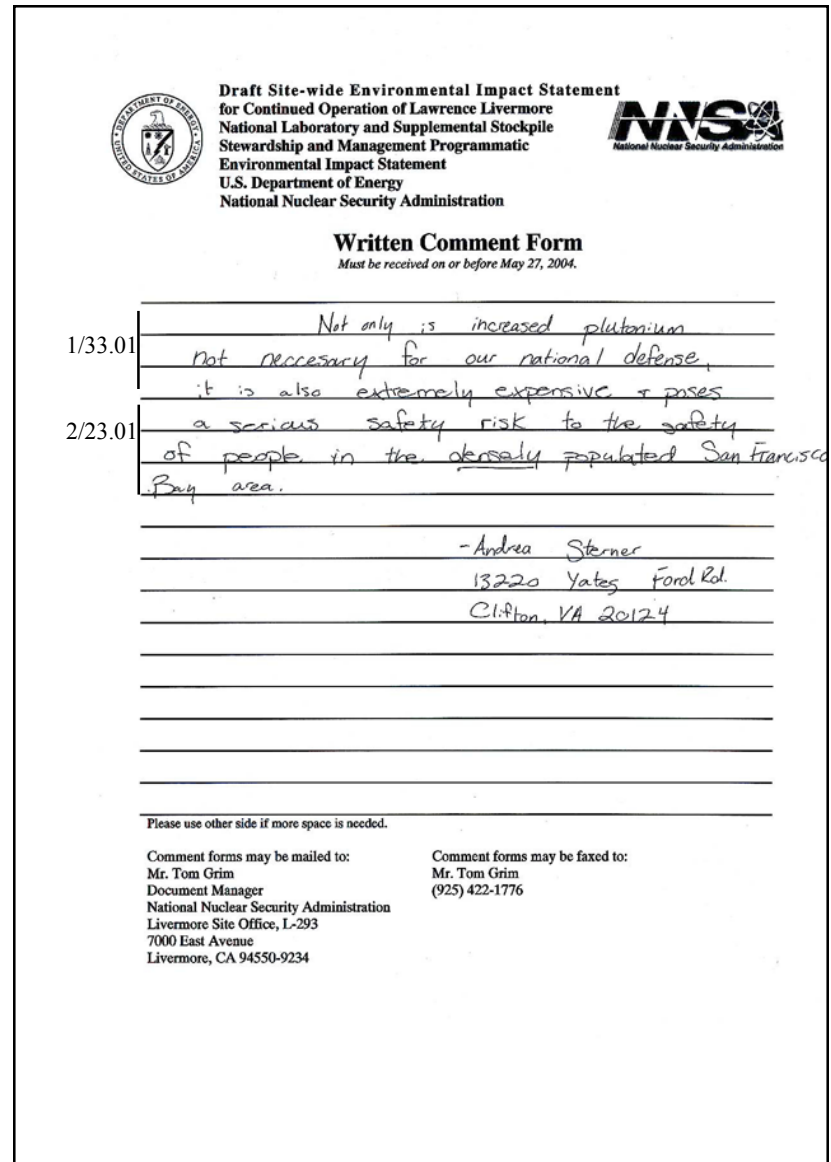 Draft Site-wide Environmental Impact Statement
for Continued Operation of Lawrence Livermore
National Laboratory and Supplemental Stockpile
Stewardship and Management Programmatic
Environmental Impact Statement
U.S. Department of Energy
National Nuclear Security Administration
DEPARTMENT OF ENERGY
UNITED STATES OF AMERICA
NNSA
National Nuclear Security Administration
Written Comment Form
Must be received on or before May 27, 2004.
1/33.01
Not only is increased plutonium
not neccesary for our national defense,
it is also extremely expensive + poses
2/23.01
a serious safety risk to the safety
of people in the densely populated San Francisco
Bay area.
-Andrea Sterner
13220 Yates Ford Rd.
Clifton, VA 20124
Please use other side if more space is needed.
Comment forms may be mailed to:
Mr. Tom Grim
Document Manager
National Nuclear Security Administration
Livermore Site Office, L-293
7000 East Avenue
Livermore, CA 94550-9234
Comment forms may be faxed to:
Mr. Tom Grim
(925) 422-1776